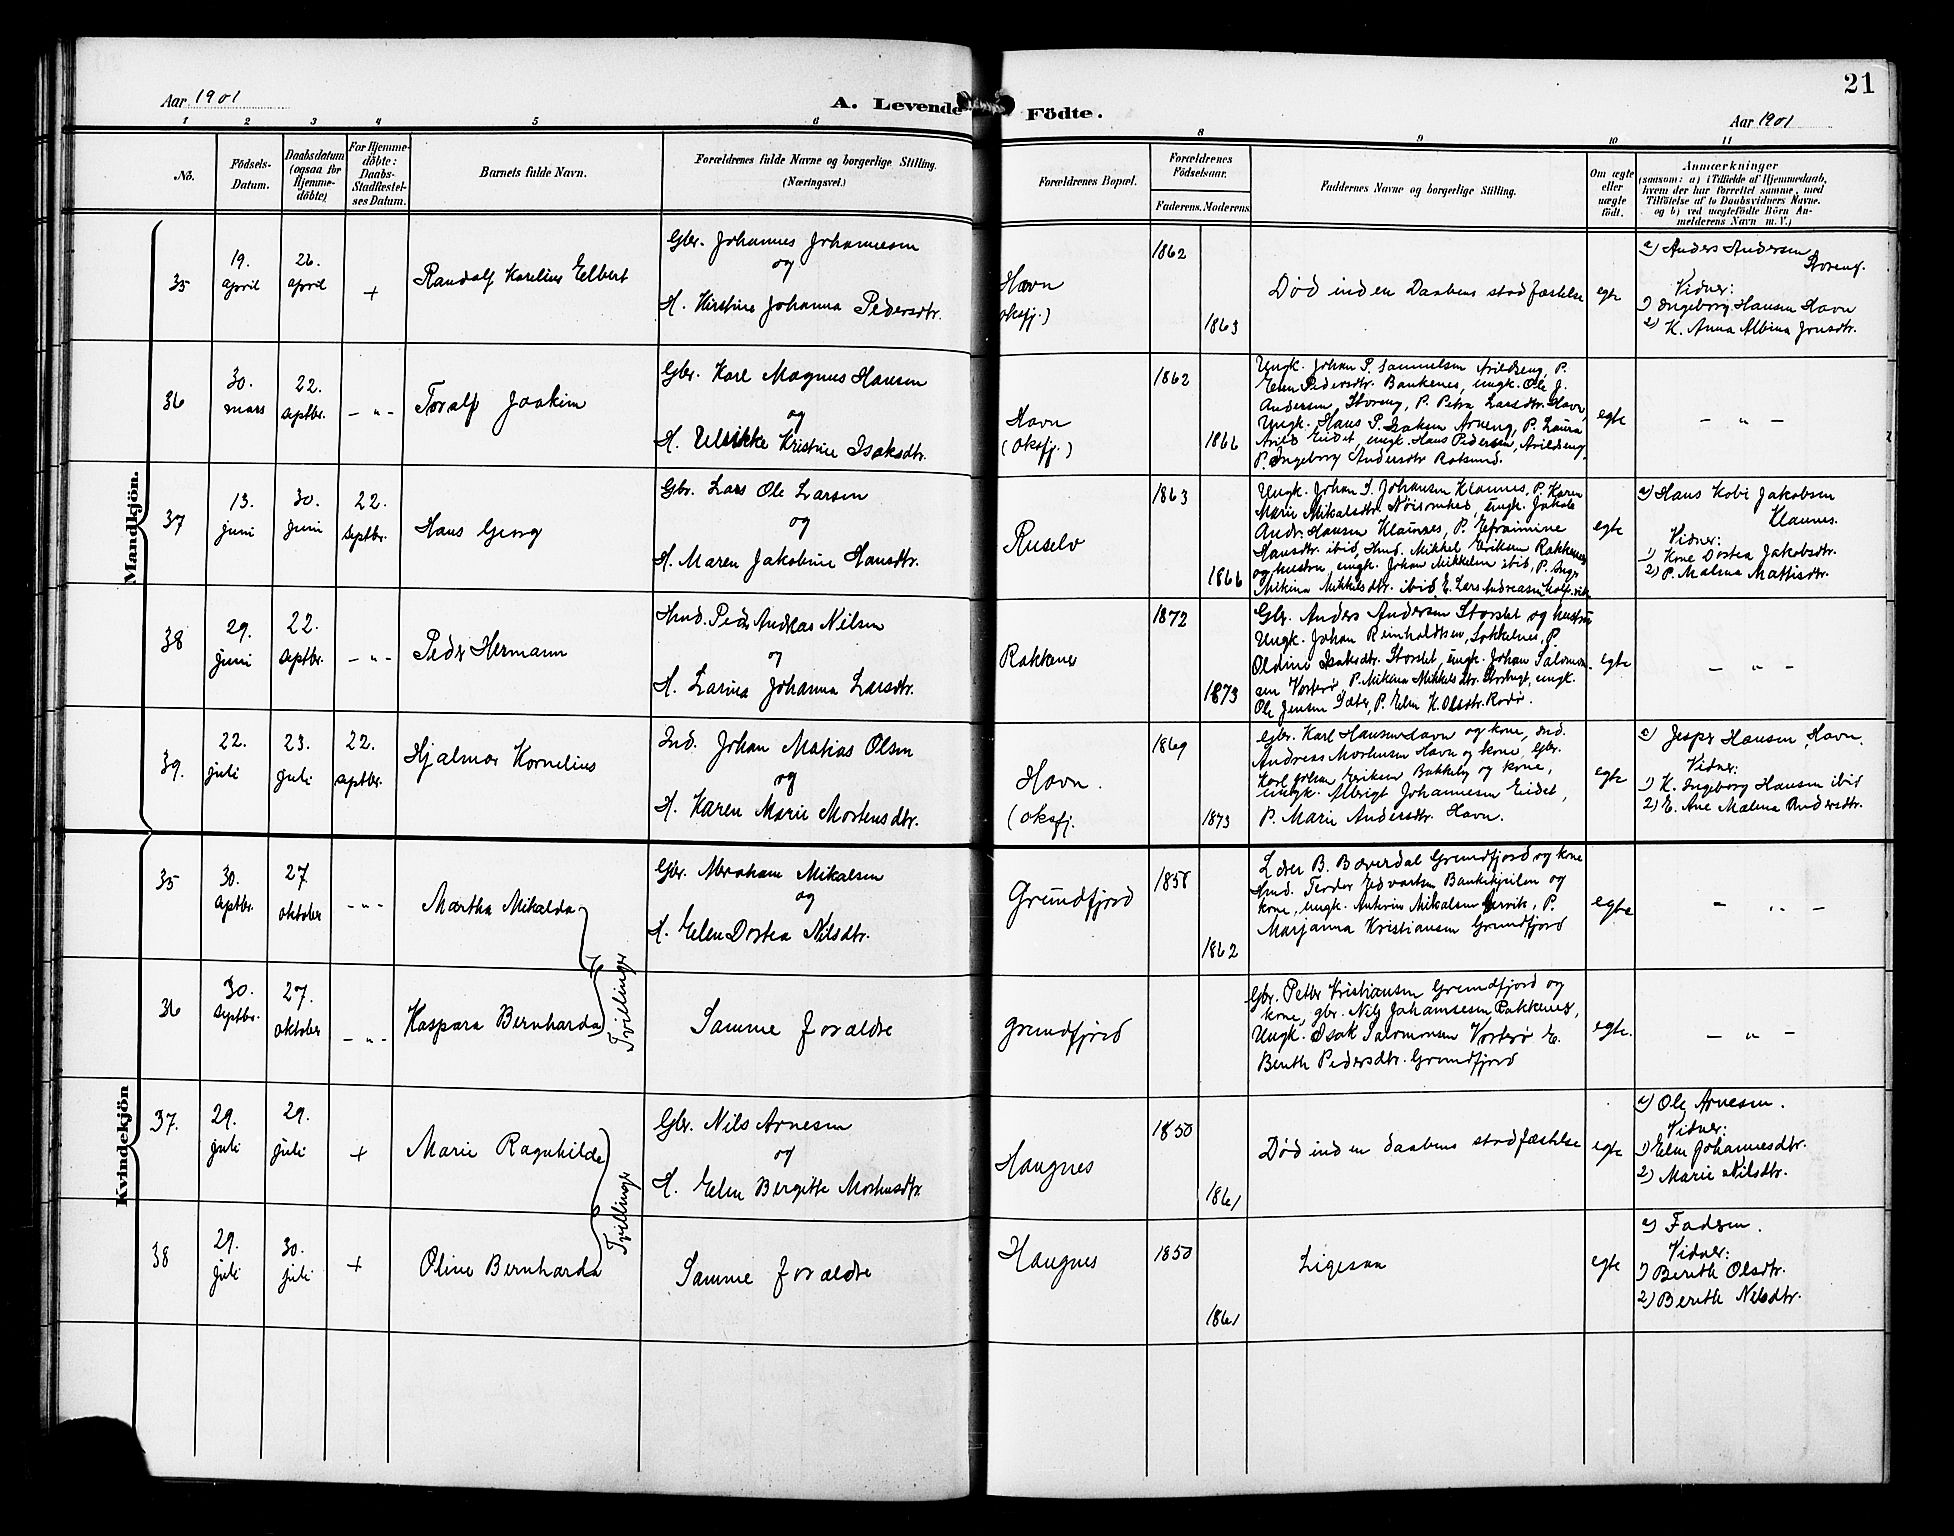 21
Aar 1901
A. Levende Födte.
Aar 1901
1 2 3 4 5 6 8 9 10 11
No.
Födsels-
Datum.
Daabsdatum
(ogsaa for
Hjemme-
döbte)
For Hjemme-
döbte:
Daabs-
Stadfæstel-
ses Datum.
Barnets fulde Navn.
Forældrenes fulde Navne og borgerlige Stilling.
(Næringsvei.)
Forældrenes Bopæl.
Forældrenes
Födselsaar.
Faderens. Moderens.
Faddernes Navne og borgerlige Stilling.
Om ægte
eller
uægte
født.
Anmærkninger
(saasom: a) i Tilfælde af Hjemmedaab,
hvem der har forrettet samme, med
Tilföielse af to Daabsvidners Navne.
og b) ved uægtefödte Börn An-
melderens Navn m. V.)
Mandkjön.
35
19.
april
26.
april
+
Randolf Karelius Elbert
Gbr. Johannes Johannesen
og
H. Kirstine Johanna Pedersdtr.
Havn
(oksfj.)
1862
1863
Død inden Daabens stadfæstelse
egte
a) Anders Andersen
Storeng.
Vidner:
1) Ingeborg Hansen Havn
2) K. Anna Albina Jonsdtr.
36
30.
mars
22.
septbr.
- " -
Toralf Joakim
Gbr. Karl Magnus Hansen
og
H. Ulrikke Kristine Isaksdtr.
Havn
(oksfj.)
1862
1866
Ungk. Johan P. Samuelsen Avildseng, P.
Elen Pedersdtr. Bankenes, ungk. Ole J.
Andersen Storeng, P. Petra Larsdtr. Havn,
Ungk. Hans P. Isaksen Arneng, P. Laura
Arild Eidet, ungk. Hans Pedersen, Avildseng.
P. Ingeborg Andersdtr Rotsund.
egte
- " -
37
13.
juni
30.
juni
22.
septbr.
Hans Georg
Gbr. Lars Ole Larsen
og
H. Maren Jakobine Hansdtr.
Ruselv
1863
1866
Ungk. Johan S. Johansen Klaunes, P. Karen
Marie Mikalsdtr. ungk. Jakob
Andr. Hansen Klaunes, P. Efraimine
Hansdtr. ibid, Hmd. Mikkel Eriksen Rakkenes
og hustru, ungk. Johan Mikkelsen ibid, P. Inger
Mikina Mikkelsdtr. ibid, E. Lars Andreasen
egte
a) Hans Kobi Jakobsen
Klaunes.
Vidner:
1) Kone Dortea Jakobsdtr.
2) P. Malena Mattisdtr.
38
29.
juni
22.
septbr.
- " -
Peder Hermann
Hmd. Peder Andreas Nilsen
og
H. Larina Johanna Larsdtr.
Rakkenes
1872
1873
Gbr. Anders Andersen Storslet og hustru
Ungk. Johan Reinholdtsen, Sokkelnes, P.
Oldine Isaksdtr. Storslet, ungk. Johan Salomon-
sen Vorterø, P. Mikina Mikkelsdtr. Storbugt, ungk.
Ole Jensen Sæter, P. Elen K. Olsdtr. Rodø.
egte
- " -
39.
22.
juli
23.
juli
22.
septbr.
Hjalmar Kornelius
Ind. Johan Matias Olsen
og
H. Karen Marie Mortensdtr.
Havn.
(oksfj.
1869
1873
Gbr. Karl Hansen Havn og kone, Ind.
Andreas Mortensen Havn og kone, Gbr.
Karl Johan Eriksen Bakkeby og kone,
ungk. Albrigt Johannesen Eidet,
P. Marie Andersdtr. Havn.
egte
a) Jesper Hansen, Havn.
Vidner:
1) K. Ingeborg Hansen ibid
2) E. Ane Malena Andersdtr.
Kvindekjön
35
30.
septbr.
27
oktober
- " -
Martha Mikalda
Gbr. Abraham Mikalsen
og
H. Elen Dortea Nilsdtr.
Grundfjord
1858
1862
Lærer B. Bæverdal Grundfjord og kone
Hmd. Teodor Edvartsen Bankekjeilen og
kone, ungk. Anton Mikalsen P.
Marjanna Kristiansen Grundfjord
egte
- " -
Tvillinger
36
30.
septbr.
27.
oktober
- " -
Kaspara Bernharda
Samme forældre
Grundfjord
Gbr. Petter Kristiansen Grundfjord og
kone, gbr. Nils Johannesen Rakkenes,
Ungk. Isak Salomonsen Vorterø E.
Berith Pedersdtr. Grundfjord
egte.
- " -
37.
29.
juli
29.
juli
+
Marie Ragnhilde
Gbr. Nils Arnesen
og
H. Elen Bergitte Mortensdtr.
Haugnes
1850
1861
Død inden daabens stadfæstelse
egte
a) Ole Arnesen.
Vidner:
1) Elen Johannesdtr.
2) Marie Nilsdtr.
Tvillinger
38
29.
juli
30.
juli
+
Oline Bernharda
Samme forældre
Haugnes
1850
1861
Ligesaa
egte
a) Faderen.
Vidner:
1) Berith Olsdtr.
2) Berith Nilsdtr.